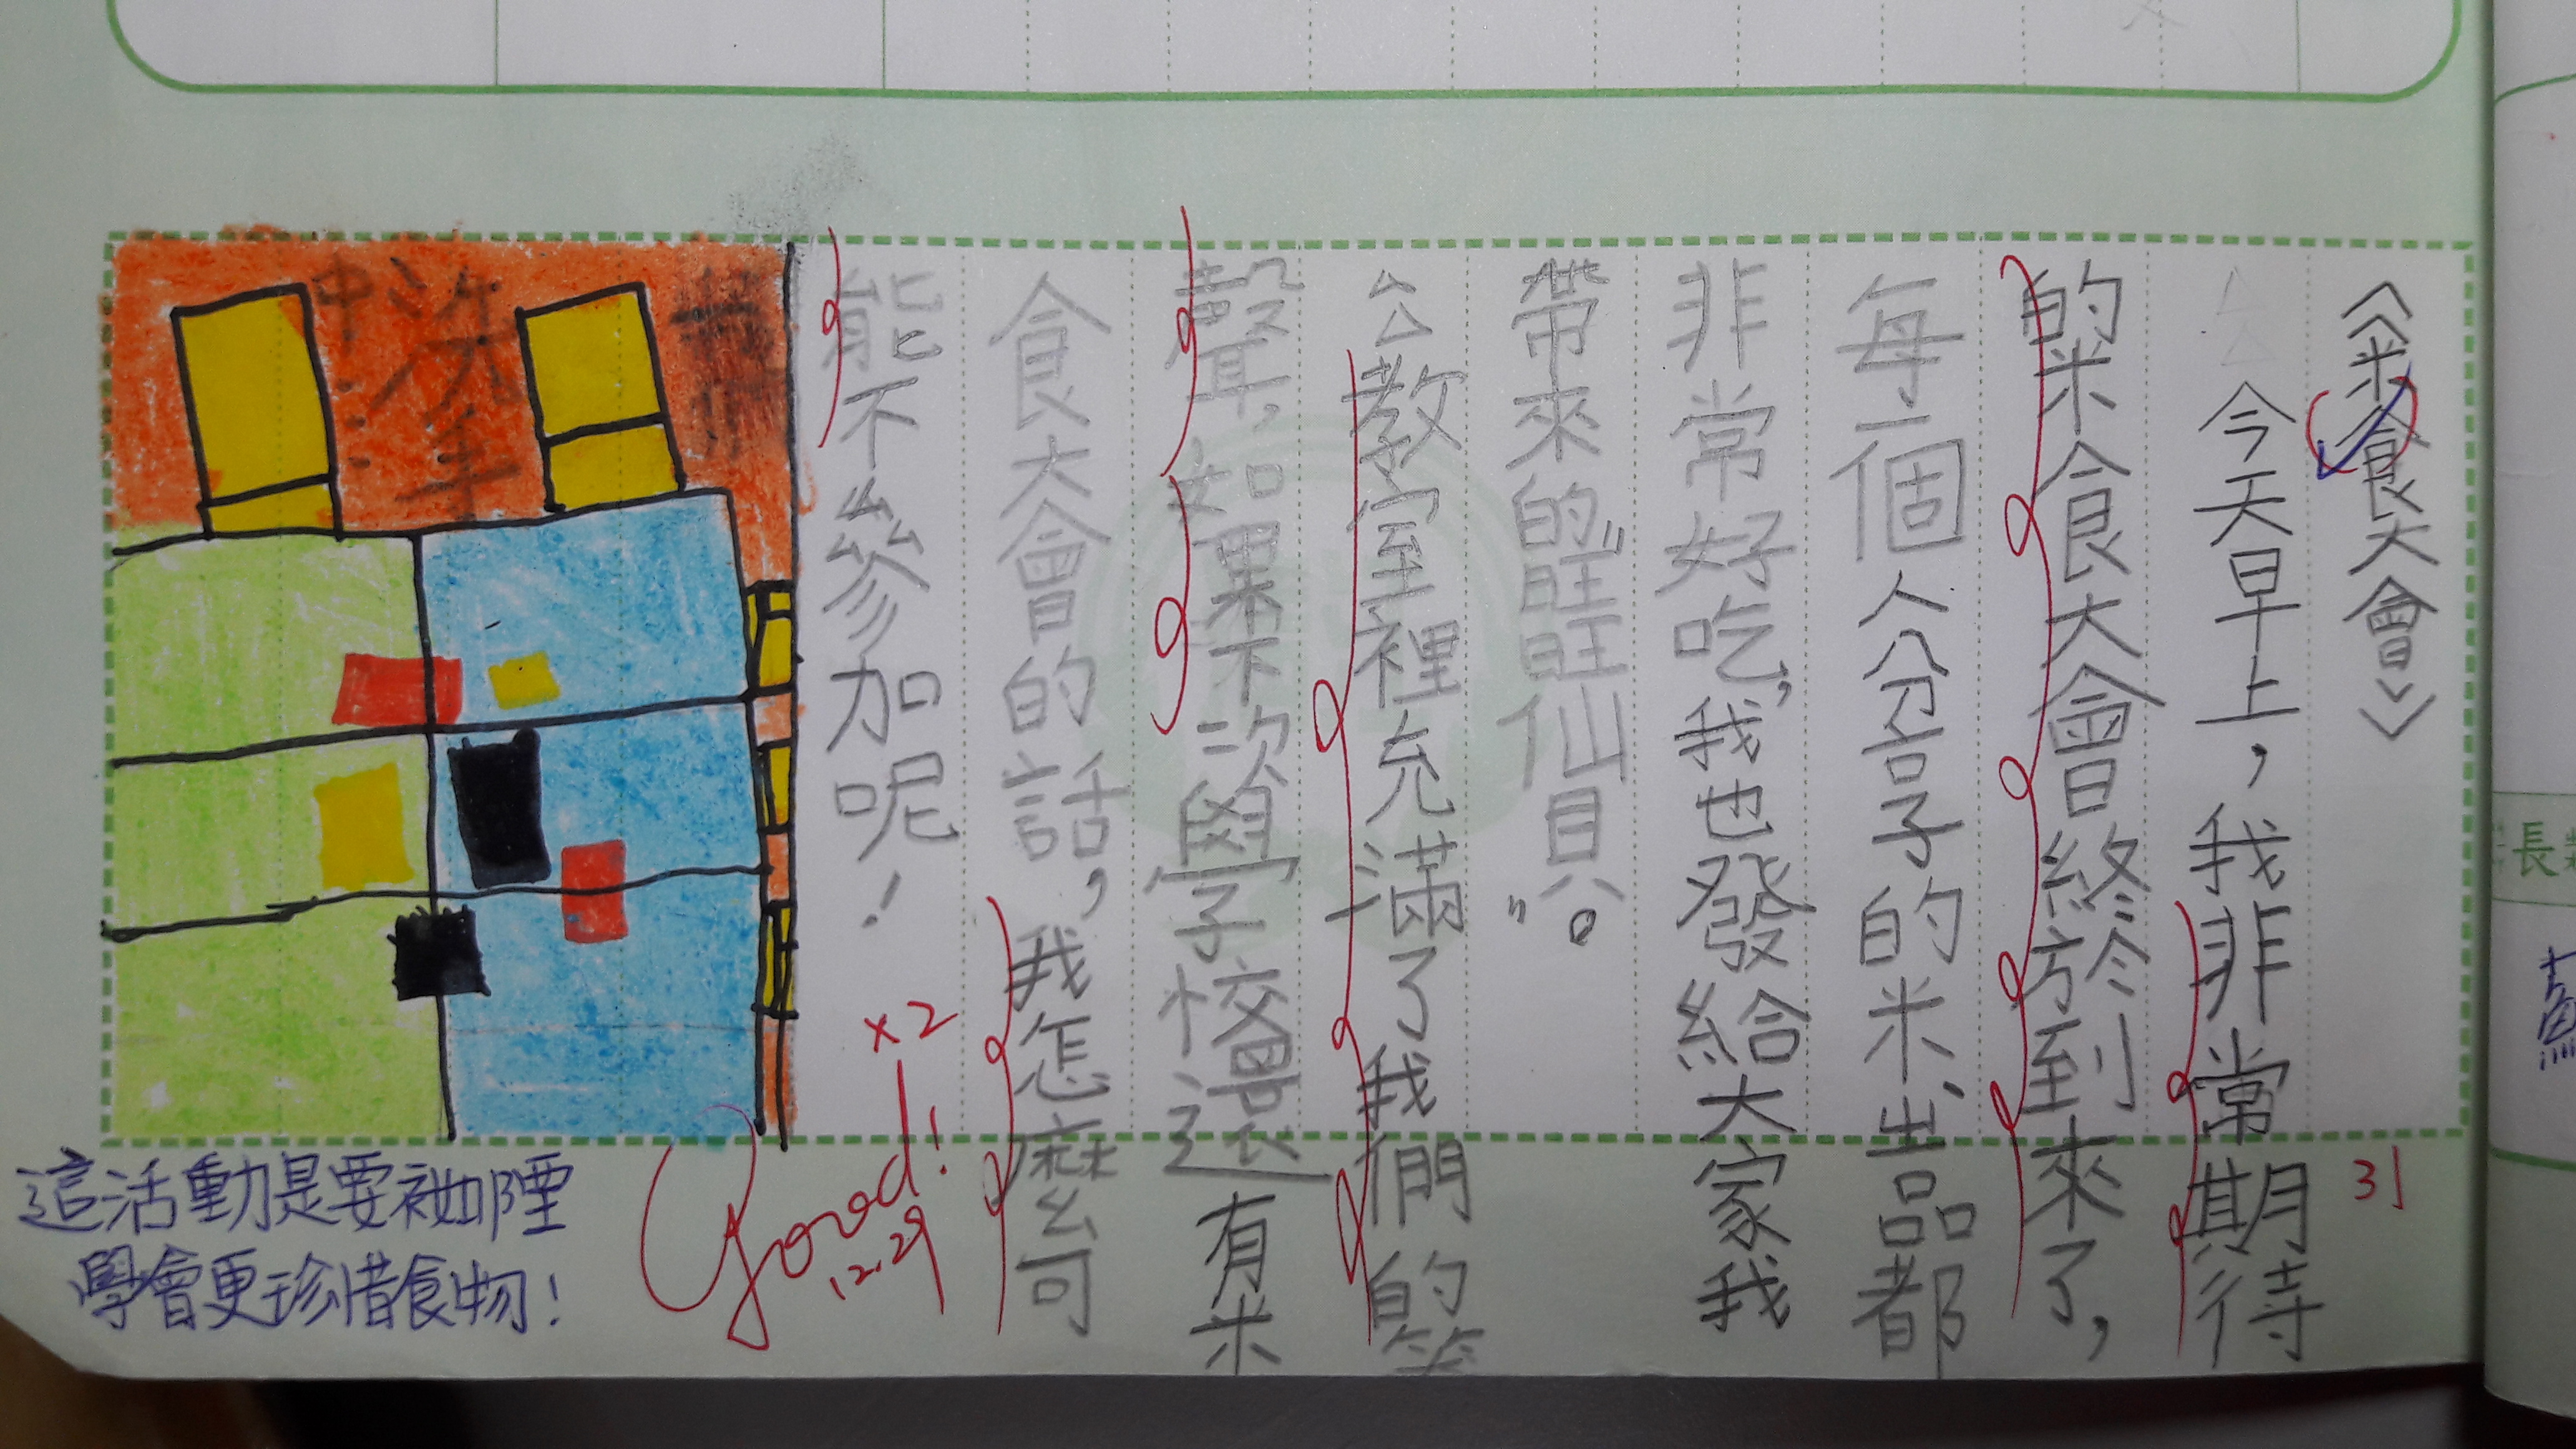 《米食大會》
今天早上，我非常期待
的米食大會終於到來了，
每一個人分享的米出品都
非常好吃，我也發給大家我
帶來的"旺旺仙貝"。
教室裡充滿了我們的笑
聲，如果下次學校還有米
食大會的話，我怎麼可
能不參加呢！
洗手
中
31
x2
Good!
12.29
這活動是要
學會更珍惜食物！
長